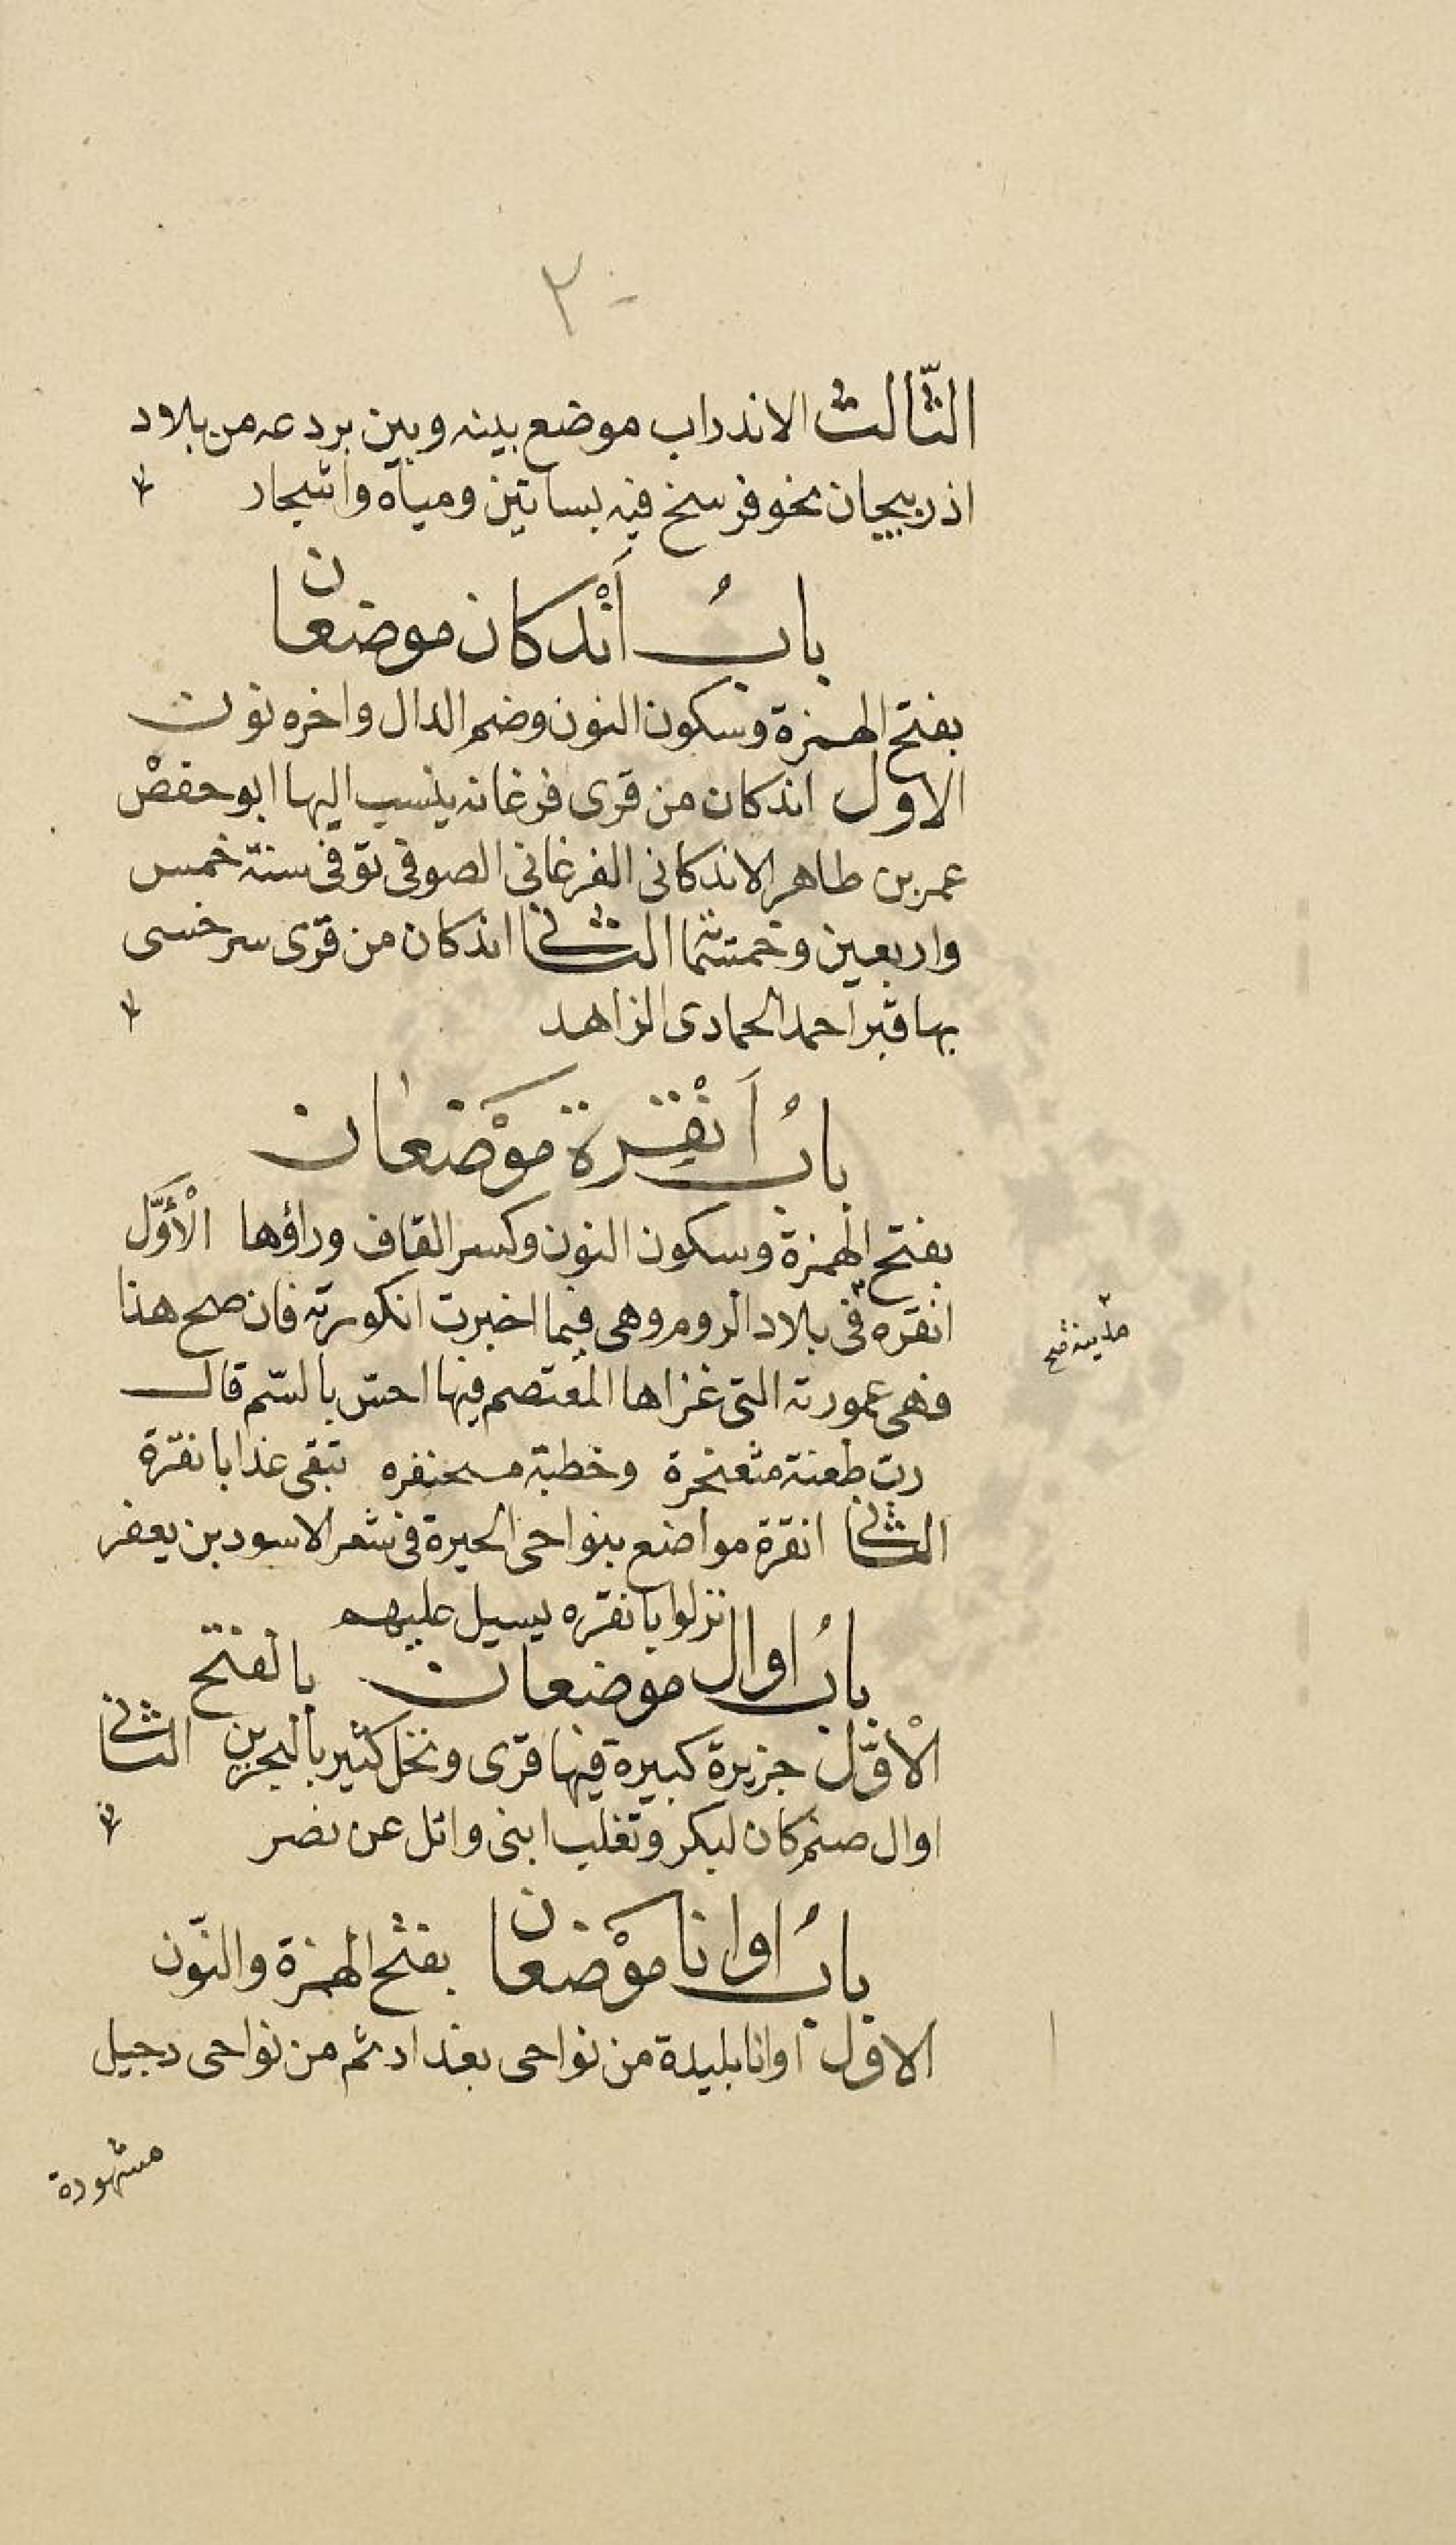 ٣٠
الثّالث الاندراب موضع بينه وبين بردعه من بلاد
اذربيجان نحو فرسخ فيه بساتين ومياه واشجار
بابُ أَنْدكان موضعان
بفتح الهمزة وسكون النون وضم الدال واخره نون
الاول اندكان من قرى فرغانه ينسب اليها ابو حفص
عمر بن طاهر الاندكانى الفرغانى الصوفى توفى سنة خمس
واربعين وخمسمائة الثانى اندكان من قرى سرخسى
بها قبر احمد الحمادى الزاهد
بابُ أَنْقِرة موْضعان
بفتح الهمزة وسكون النون وكسر القاف وراؤها الْأَوَّل
انقره فى بلاد الروم وهى فيما اخبرت انكورته فان صح هذا
مدينة صح
فهى عمورته التى غزاها المعتصم فيها احسّ بالسّم قال
ربّ طعنة مثعنجرة وخطبة مسحنفره تبقى غدا بانقرة
الثانى انقرة مواضع بنواحى الحيرة فى شعر الاسود بن يعفر
نزلوا بانقره يسيل عليهم
بابُ اوال موضعان بالفتح
الْاوّل جزيرة كبيرة فيها قرى ونخل كثير بالبحرين الثانى
اوال صنم كان لبكر وتغلب ابنى وائل عن نصر
بابُ اوانا موْضعان بفتح الهمزة والنّون
الاول اوانا بليدة من نواحى بغداد ثم من نواحى دجيل
مشهورة